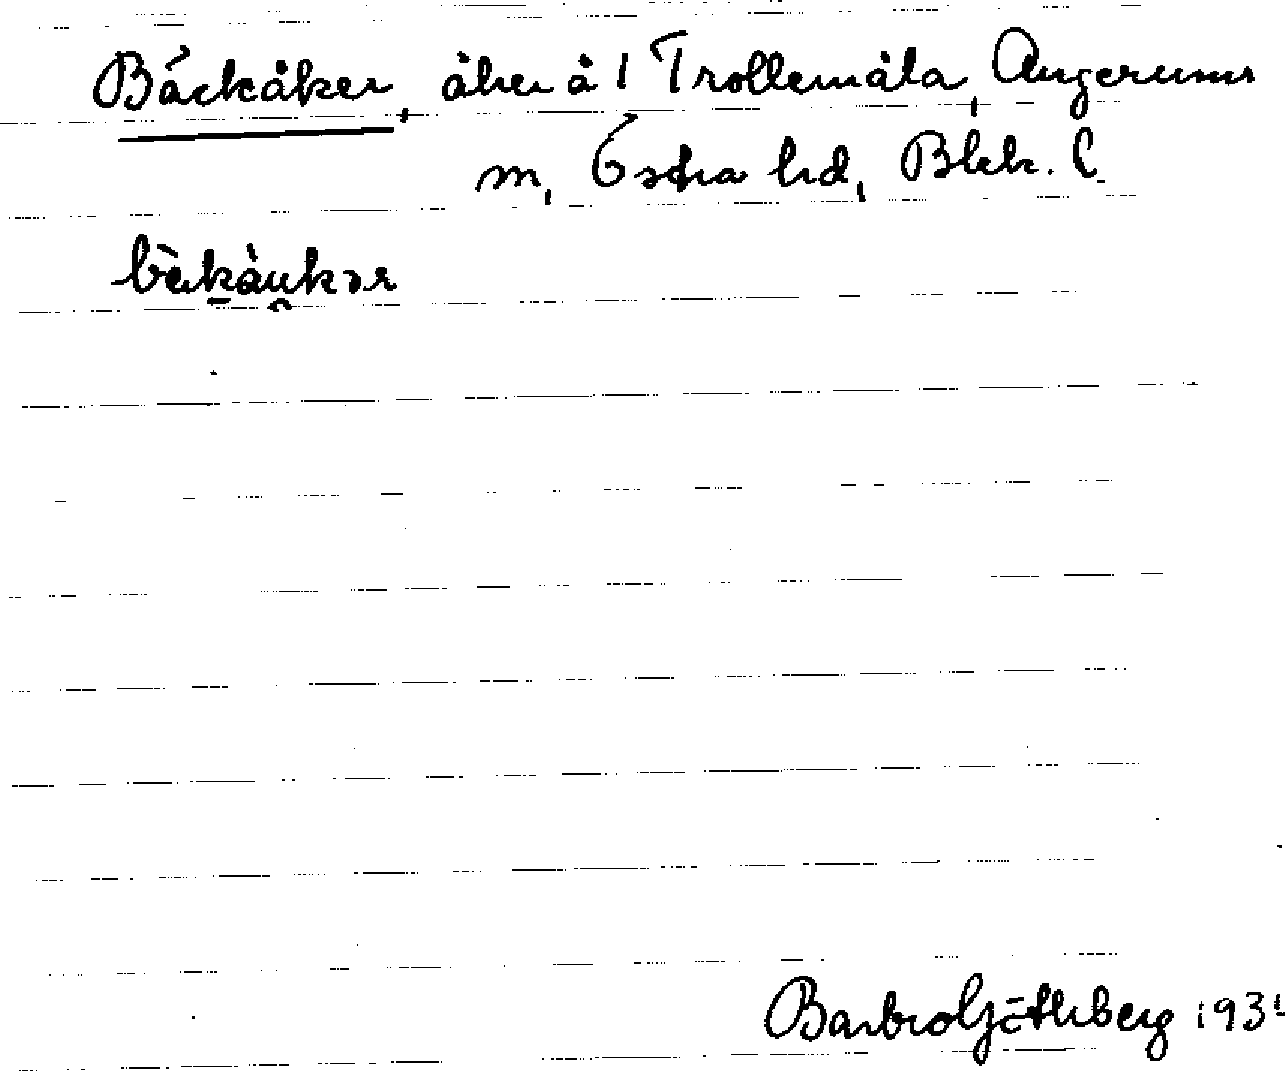 Bäckåker, åker å 1 Trollemåla, Augerums
sn, Östra hd, Blek. l.
bèkàukər
Barbro Götheberg 193